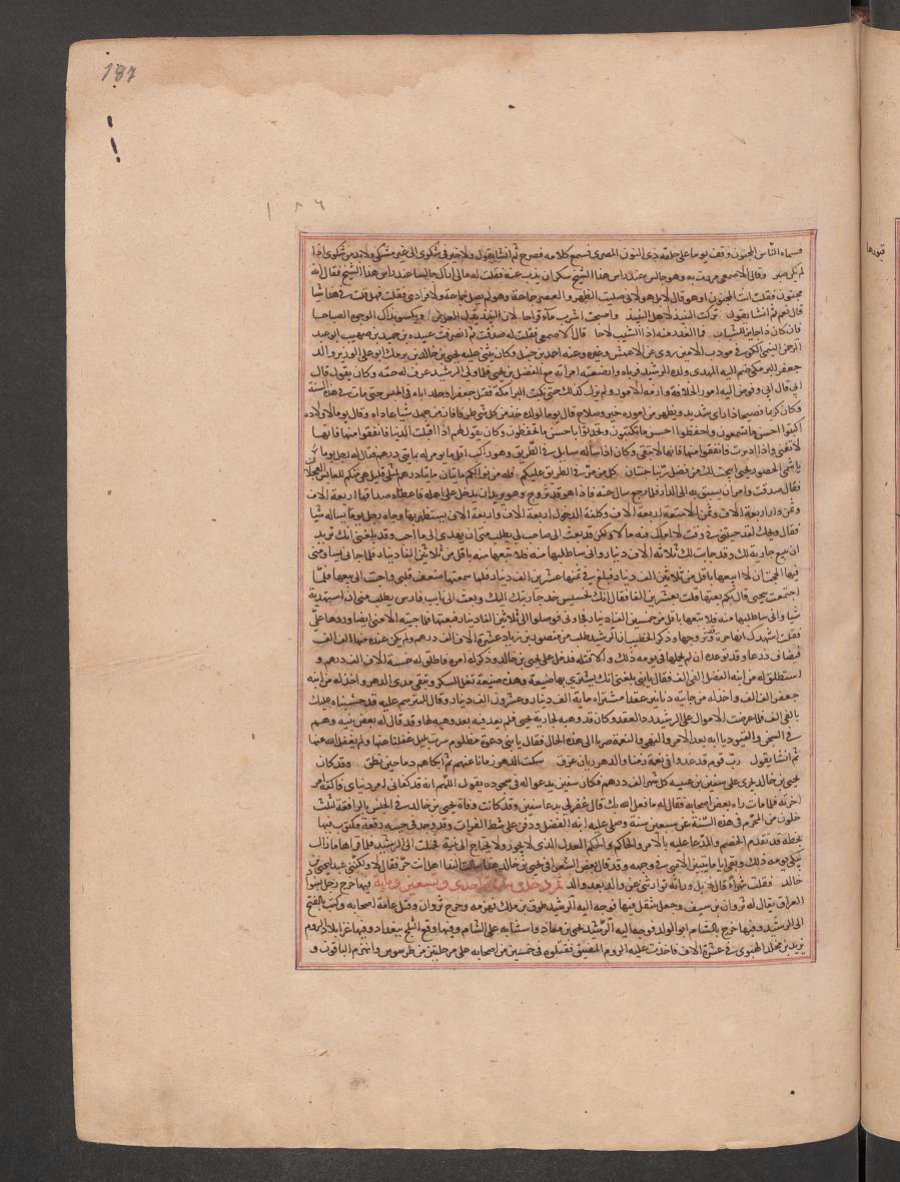 187
١٨٦
قبورها
فسماه الناس المجنون وقف يوما على حلقة ذى النون المصرى فسمع كلامه فصرخ ثم انشا يقول ولا خير فى شكوى الى غير مشتكى ولابد من شكوى اذا
لم يكن صبر وقال الاصمعى مررت به وهو جالس عند راس هذا الشيخ سكران يذب عنه فقلت له مالى اراك جالسا عند راس هذا الشيخ فقال انه
مجنون فقلت انت المجنون او هو قال لا بل هو لانى صليت الظهر والعصر جماعة وهو لم يصل جماعة ولا فرادى فقلت فهل قلت فى هذا شيا
قال نعم ثم انشا يقول تركت النبيذ لاهل النبيذ واصبحت اشرب ماء قراحا لان النبيذ يذل العزيز ويكسو بذاك الوجوه الصباحا
فان كان ذا جايزا للشباب فما العذر منه اذا الشيب لاحا قال الاصمعى فقلت له صدقت ثم انصرفت عبيده بن حميد بن صهيب ابو عبد
الرحمن التيمى الكوفى مودب الامين روى عن الاعمش وغيره وعنه احمد بن حنبل وكان يثنى عليه يحيى بن خالد بن برمك ابو على الوزير والد
جعفر البرمكى ضم اليه المهدى ولده الرشيد فرباه وارضعته امراته مع الفضل بن يحيى فلما ولى الرشيد عرف له حقه وكان يقول قال
ابى قال ابى وفوض اليه امور الخلافة وازمة الامور ولم يزل كذلك حتى نكبت البرامكة فقتل جعفرا وخلد اباه فى الحبس حتى مات فى هذه السنة
وكان كريما فصيحا ذا راى شديد ويظهر من اموره خير وصلاح قال يوما لولده خذ من كل شى طرفا فان من جهل شيا عاداه وقال يوما لاولاده
اكتبوا احسن ما تسمعون واحفظوا احسن ما تكتبون وتحدثوا باحسن ما تحفظون وكان يقول لهم اذا اقبلت الدنيا فانفقوا منها فانها
لا تفنى واذا ادبرت فانفقوا منها فانها لا تبقى وكان اذا ساله سايل فى الطريق وهو راكب اقل ما يومر له بمايتى درهم فقال له رجل يوما
يا سمى الحصور يحيى اتيحت لك من فضل ربنا جنتان كل من مر فى الطريق عليكم فله من نوالكم مايتان مايتا درهم لمثلى قليل هى منكم للفارس العجلان
فقال صدقت وامر ان يسبق به الى الدار فلما رجع سال عنه فاذا هو قد تزوج وهو يريد ان يدخل على اهله فاعطاه صداقها اربعة الاف
وثمن دار اربعة الاف وثمن الامتعة اربعة الاف وكلفة الدخول اربعة الاف واربعة الاف يستظهر بها وجاه رجل يوما يساله شيا
فقال ويحك لقد جيتنى فى وقت لا املك فيه مالا ولكن قد بعث الى صاحب لى يطلب منى ان يهدى الى ما احب وقد بلغنى انك تريد
ان تبيع جارية لك وقد جابت لك ثلاثة الاف دينار وانى ساطلبها منه فلا تبعها منه باقل من ثلاثين الف دينار فلما جاى يساومنى
فيها الححت ان لا ابيعها باقل من ثلاثين الف دينار فبلغ فى ثمنها عشرين الف دينار فلما سمعتها ضعف قلبى واجبت الى بيعها فلما
اجتمعت بيحيى قال بكم بعتها قلت بعشرين الفا فقال انك لخسيس خذ جاريتك اليك وبعث الى نايب فارس يطلب منى ان استهديه
شيا وانى ساطلبها منه فلا تبعها باقل من خمسين الف دينار فجاونى فوصلوا الى ثلاثين الف دينار فبعتها فلما جيته لامنى ايضا وردها على
فقلت اشهدك انها حرة وقد تزوجها وذكر الخطيب ان الرشيد طلب من منصور بن زياد عشرة الاف الف درهم ولم يكن عنده منها الف الف
فضاق ذرعا وقد توعده ان لم يحملها فى يومه ذلك والا قتله فدخل على يحيى بن خالد وذكر له امره فاطلق له خمسة الاف الف درهم و
استطلق له من ابنه الفضل الفى الف فقال يا بنى بلغنى انك تشترى بها ضيعة وهذه ضيعة تغل الشكر وتبقى مدى الدهر واخذ له من ابنه
جعفر الف الف واخذ له من جاريته دنانير عقدا مشتراه ماية الف دينار وعشرون الف دينار وقال للمترسم عليه قد حسبناه عليك
بالفى الف فلما عرضت الاموال على الرشيد رد العقد وكان قد وهبه لجارية يحيى فلم يعد فيه بعد وهبه لها وقد قال له بعض بنيه وهم
فى السجن والقيود يا ابه بعد الامر والنهى والنعمة صرنا الى هذه الحال فقال يا بنى دعوة مظلوم سرت بليل غفلنا عنها ولم يغفل الله عنها
ثم انشا يقول رب قوم قد غدوا فى نعمة زمنا والدهر ريان غدق سكت الدهر زمانا عنهم ثم ابكاهم دما حين نطق وقد كان
يحيى بن خالد يجرى على سفين بن عيينة كل شهر الف درهم فكان سفين يدعو له فى سجوده يقول اللهم انه قد كفانى امر دنياى فاكفه امر
اخرته فلما مات راه بعض اصحابه فقال له ما فعل الله بك قال غفر لى بدعا سفين وقد كانت وفاة يحيى بن خالد فى الحبس بالرافقة لثلث
خلون من المحرم فى هذه السنة عن سبعين سنة وصلى عليه ابنه الفضل ودفن على شط الفرات وقد وجد فى جيبه رقعة مكتوب فيها
بخطه قد تقدم الخصم والمدعا عليه بالامر والحاكم والحكم العدل الذى لا يجور ولا يحتاج الى بينة فحملت الى الرشيد فلما قراها ما زال
يبكى يومه ذلك وبقى اياما يتبين الاسى فى وجهه وقد قال بعض الشعرا فى يحيى بن خالد سالت الندا هل انت حر فقال لا ولكننى عبد ليحيى بن
خالد فقلت شراء قال لا بل وراثة توارثنى عن والد بعد والد ثم دخلت سنة احدى وتسعين وماية فيها خرج رجل بسواد
العراق يقال له ثروان بن سيف وجعل ينتقل فيها فوجه اليه الرشيد طوق بن ملك فهزمه وجرح ثروان وقتل عامة اصحابه وكتب بالفتح
الى الرشيد وفيها خرج بالشام ابو الولد فوجه اليه الرشيد يحيى بن معاذ واستنابه على الشام وفيها وقع الثلج ببغداد وفيها غزا بلاد الروم
يزيد بن مخلد الهبيرى فى عشرة الاف فاخذت عليه الروم المضيق فقتلوه فى خمسين من اصحابه على مرحلتين من طرسوس وانهزم الباقون و